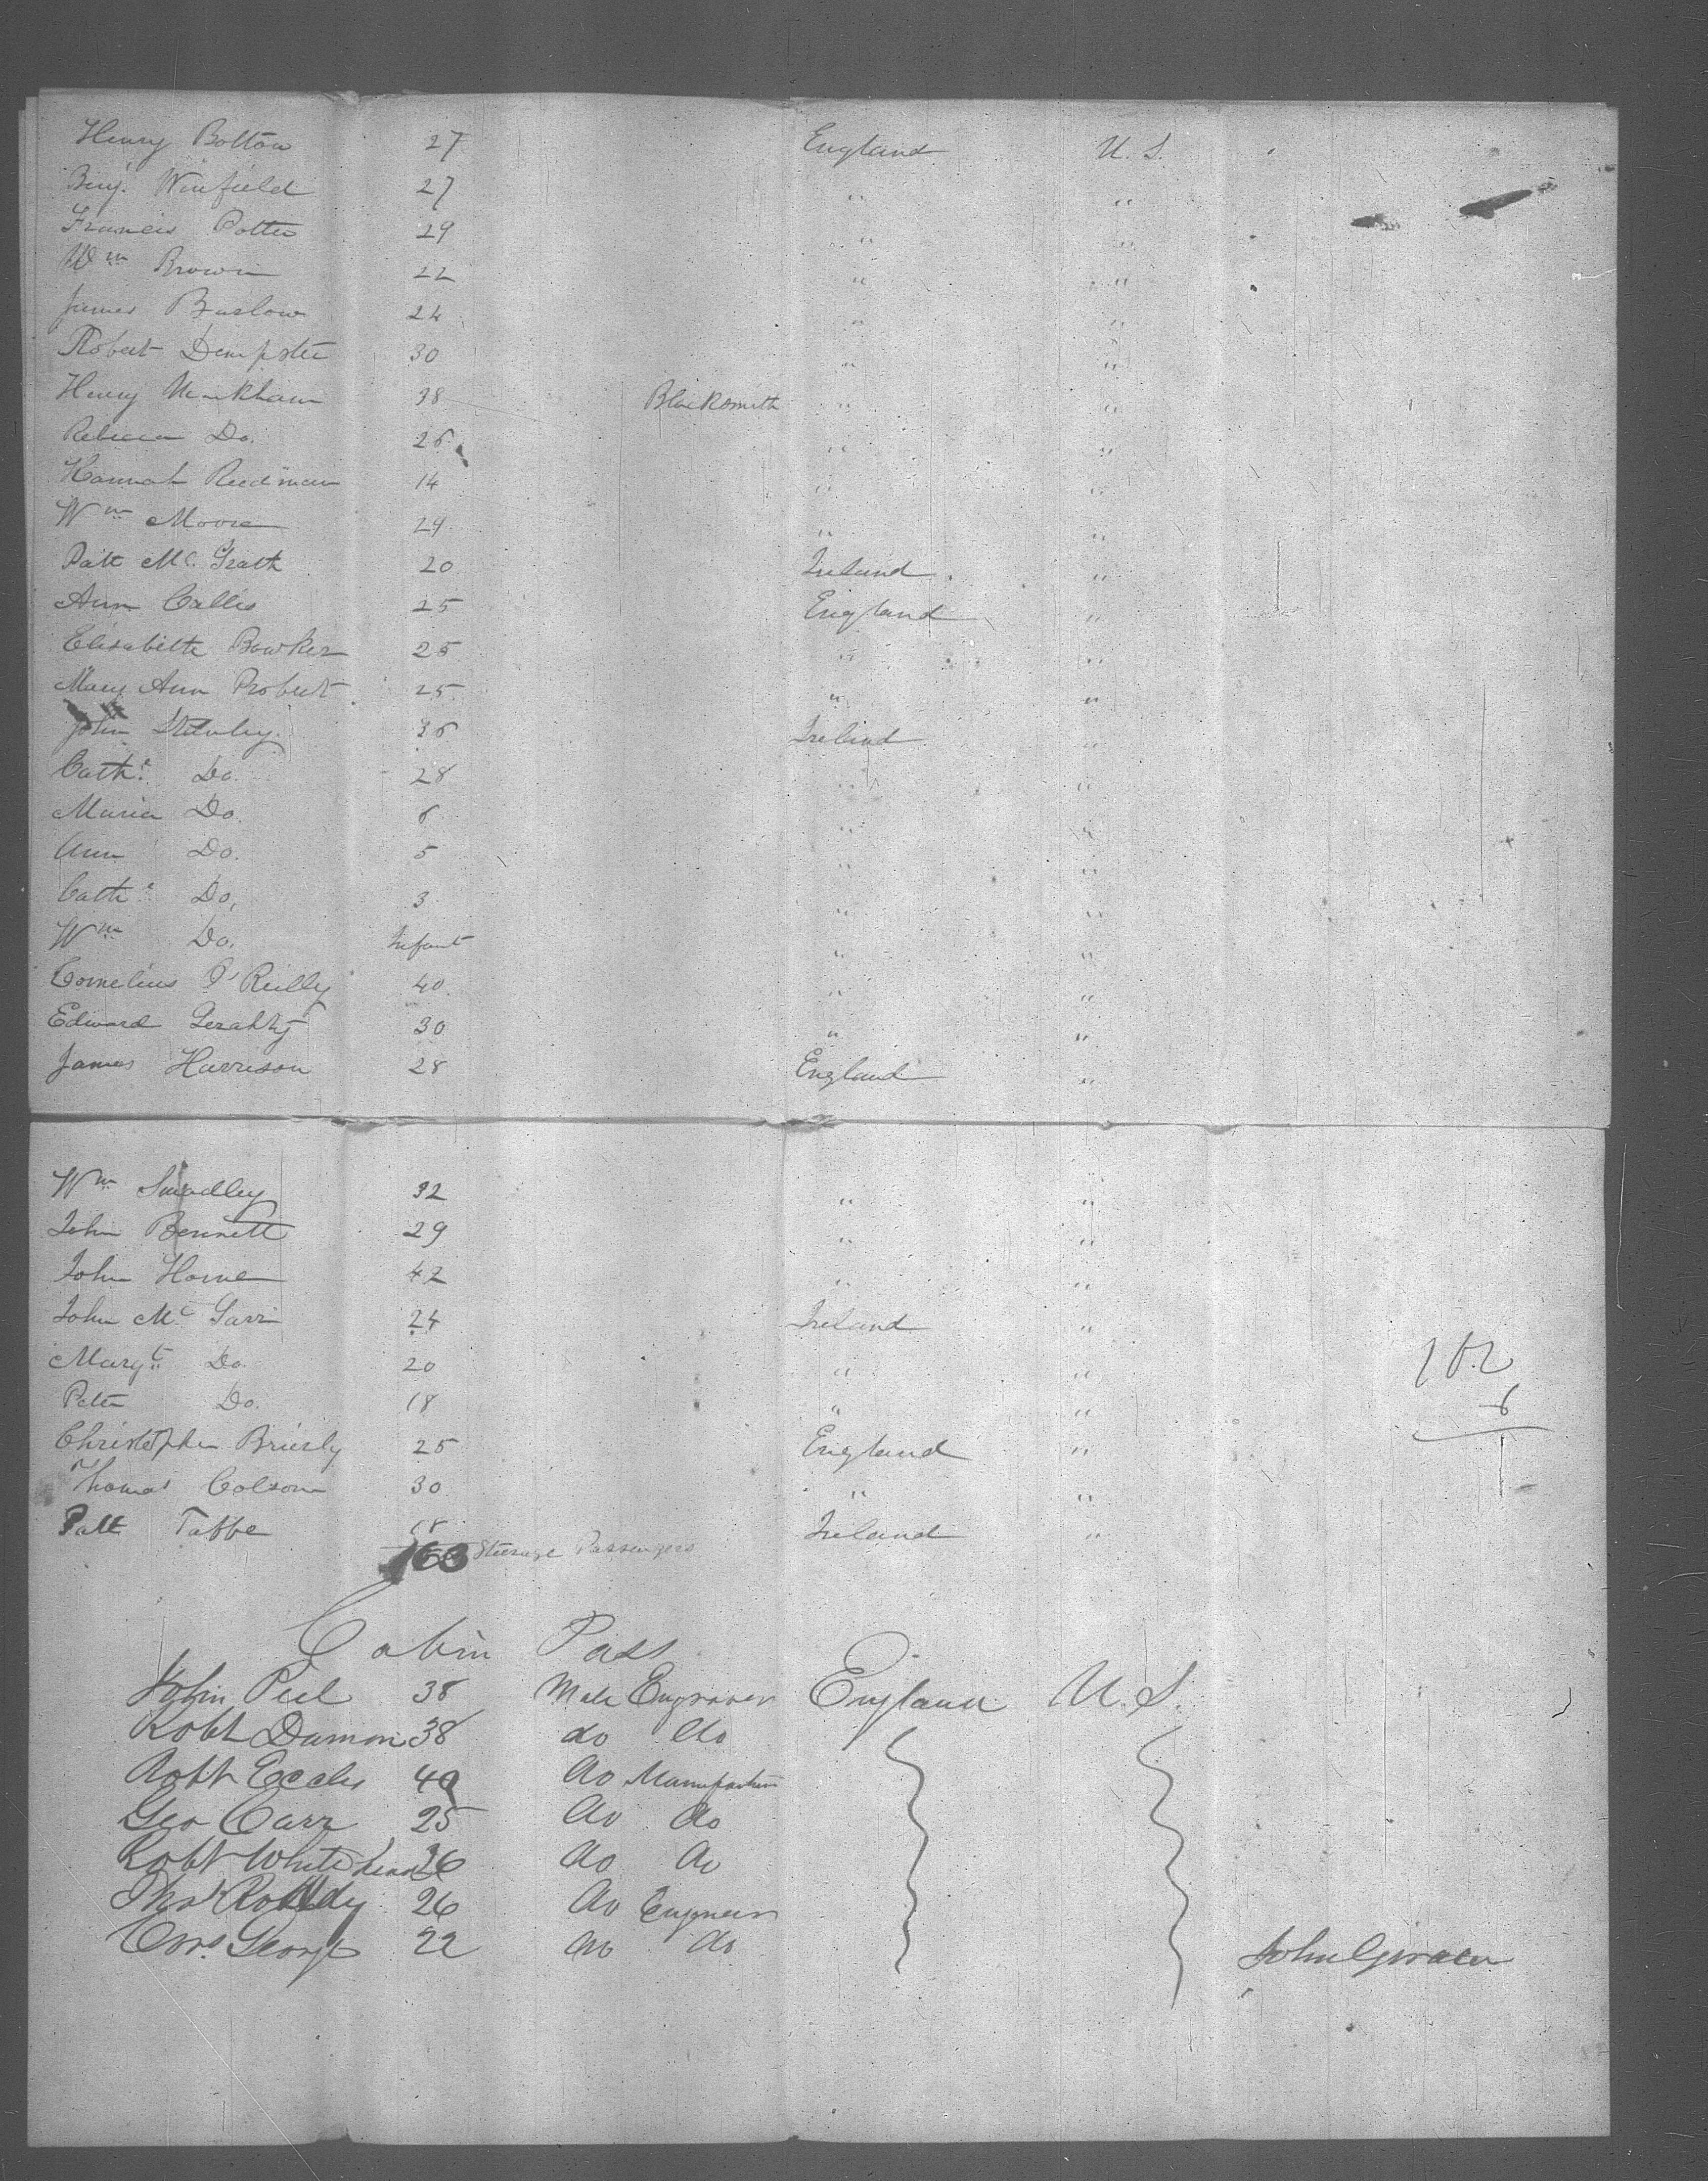 Henry Bolton 27 England U. S.
Benj. Winfield 27 " "
Francis Potter 29 " "
Wm Brown 22 " "
James Barlow 24 " "
Robert Dempster 30 " "
Henry Markham 38 Blacksmith " "
Rebecca Do. 26 " "
Hannah Reedman 14 " "
Wm Moore 29 " "
Patt Mc. Grath 20 Ireland "
Ann Callis 25 England "
Elisabeth Bowker 25 " "
Mary Ann Probert 25 " "
John Stanley 36 Ireland "
Cathe. Do. 28 " "
Maria Do. 6 " "
Ann Do. 5 " "
Cathe. Do. 3 " "
Wm Do. Infant " "
Cornelius O'Reilly 40 " "
Edward Gerahty 30 " "
James Harrison 28 England "
Wm Smadley 32 " "
John Bennett 29 " "
John Horne 42 " "
John Mc Garr 24 Ireland "
Margt. Do. 20 " "
Peter Do. 18 " "
Christopher Brierly 25 England "
Thomas Colson 30 " "
Patt Taffe 18 Ireland "
163 Steerage Passengers
Cabin Pass
John Peel 38 Male Engraver England U. S.
Robt Damon 38 do do
Robt Eccles 40 do Manufacturer
Geo Carr 25 do do
Robt Whitehead 26 do do
Thos Roddy 26 do Engineer
George 22 do do
John